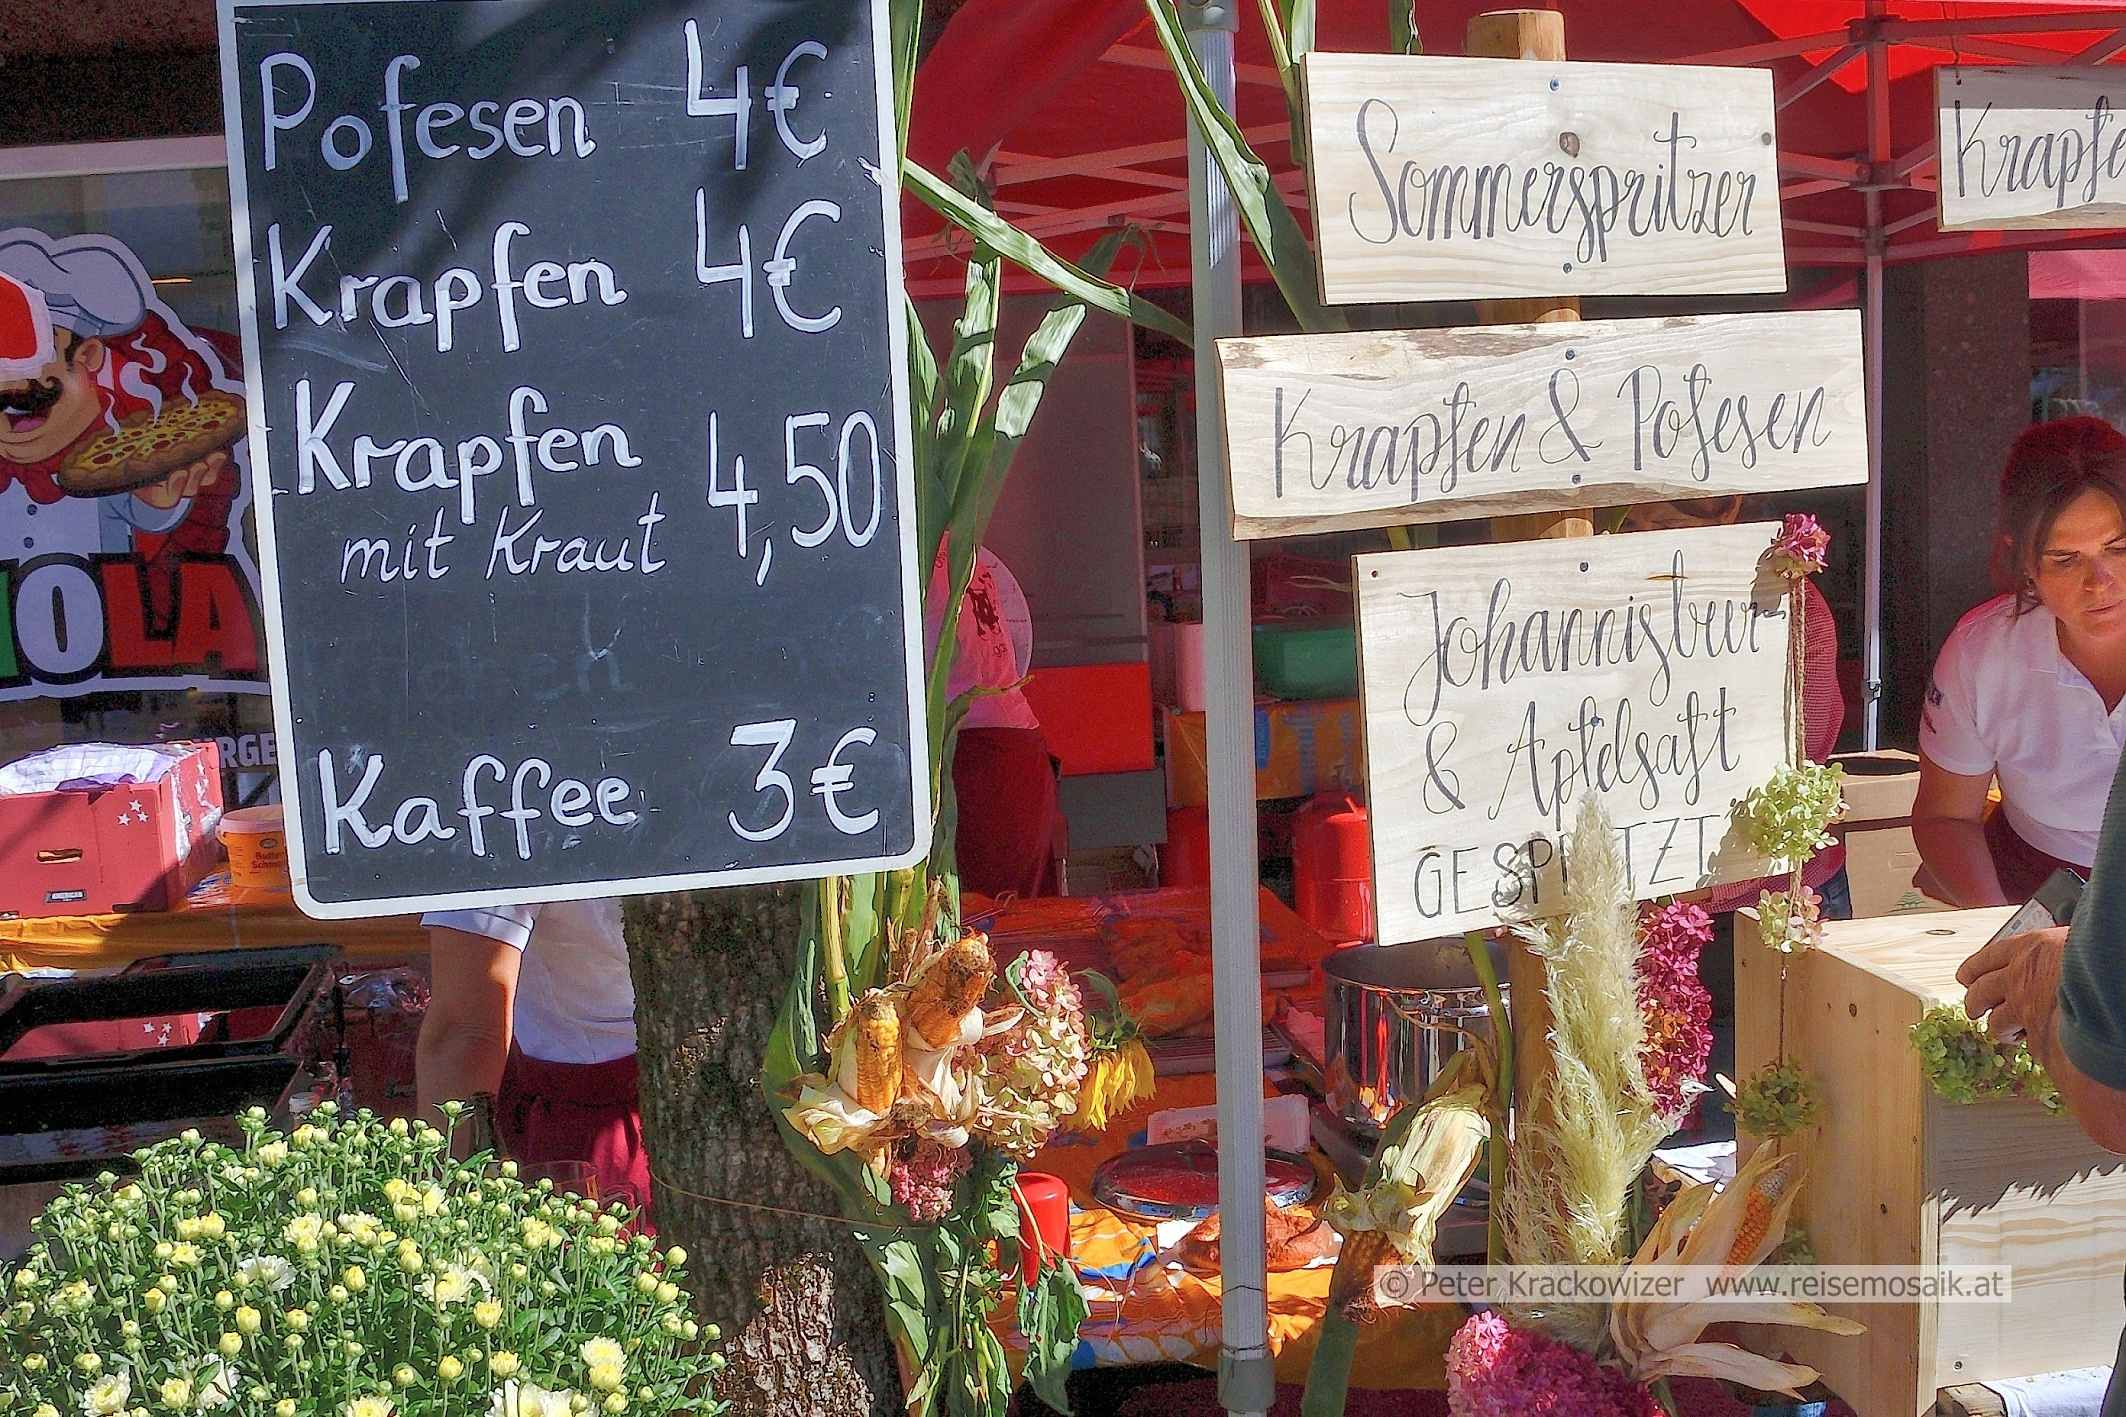 Pofesen 4€
Krapfen 4€
Krapfen 4,50
mit Kraut
Kaffee 3€
Sommerspritzer
Krapfen & Pofesen
Johannisbeer
& Apfelsaft
GESPRITZT
© Peter Krackowizer www.reisemosaik.at